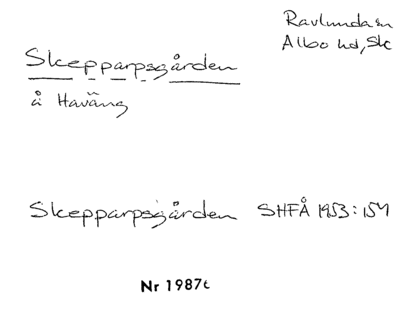 Ravlunda sn
Albo hd, Sk
Skepparpsgården
å Haväng
Skepparpsgården SHFÅ 1953:154
Nr 1987